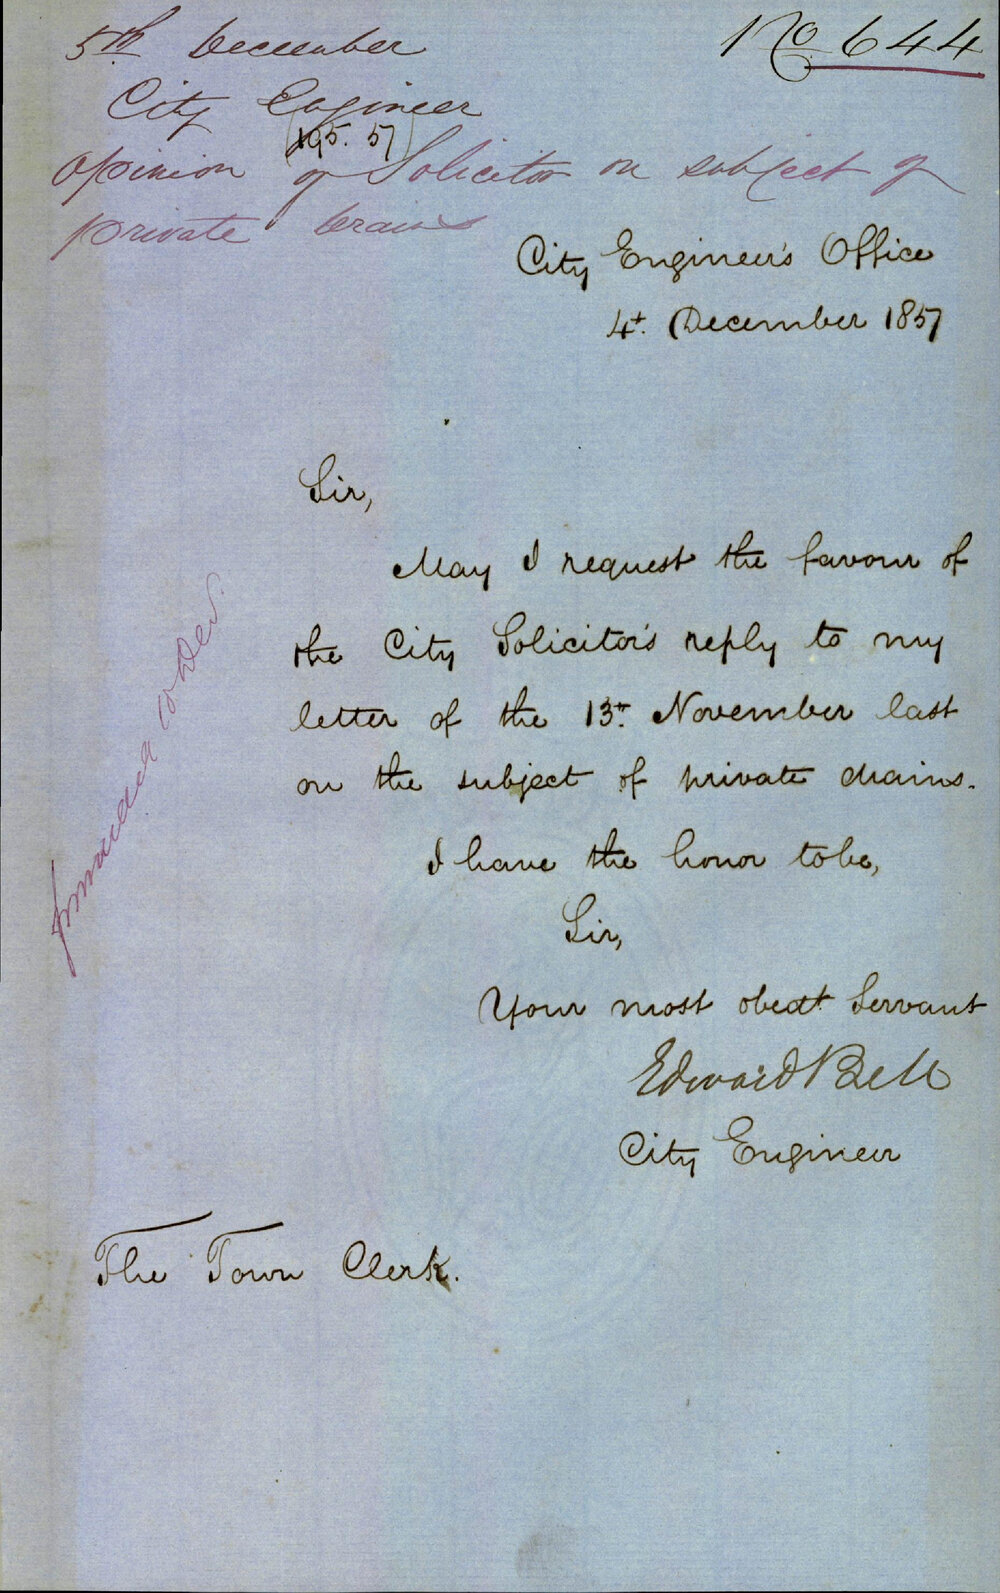 5th December
No 644
City Engineer
(195.57)
Opinion of Solicitor on subject of
private drains
City Engineer's Office
4t. December 1857
Sir,
May I request the favour of
the City Solicitor's reply to my
letter of the 13th. November last
on the subject of private drains.
I have the honor to be,
Sir,
Your most obedt. Servant
Edward Bell
City Engineer
The Town Clerk.